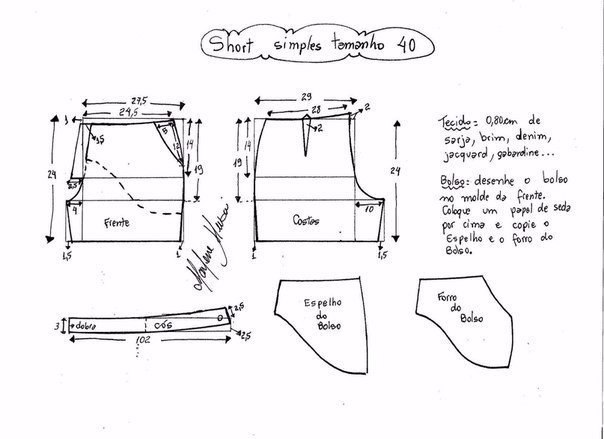 Short simples tamanho 40
27,5
24,5
3
3,5
5
12
14
19
24
3,5
4
Frente
1,5
1
29
28
2
2
14
19
24
10
Costas
1
1,5
Tecido: 0,80cm de
sarja, brim, denim,
jacquard, gabardine...
Bolso: desenhe o bolso
no molde da frente.
Coloque um papel de seda
por cima e copie o
Espelho e o forro do
Bolso.
Marlene Mukai
3
dobra
cós
2,5
2,5
102
Espelho
do
Bolso
Forro
do
Bolso